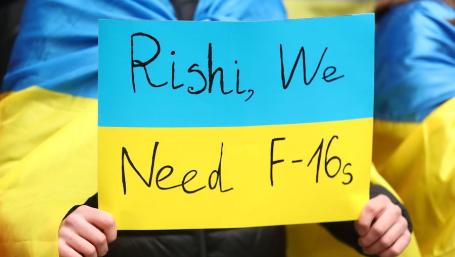 Rishi, We
Need F-16s